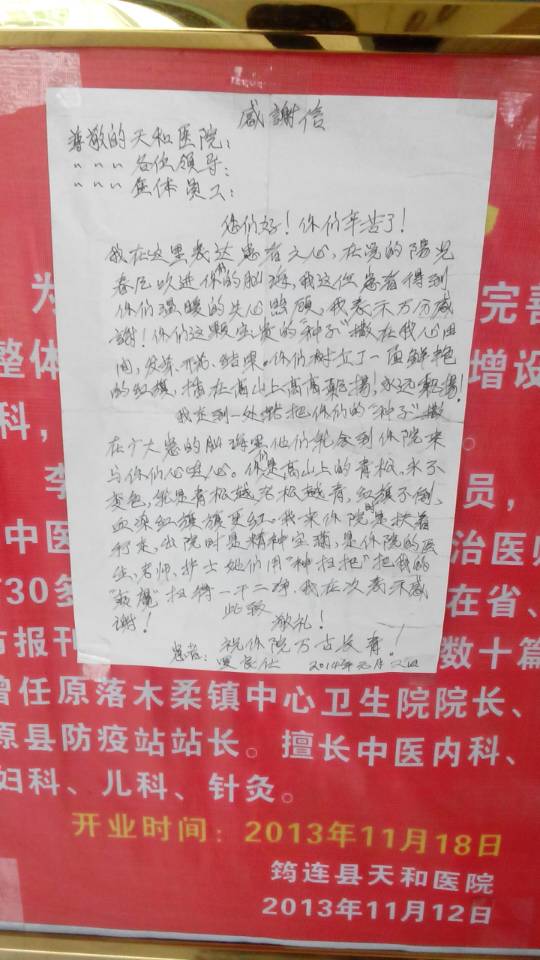 感謝信
尊敬的天和医院:
〃〃〃各位领导:
〃〃〃全体员工:
您们好!你们辛苦了!
我在这里表达患者之心,在院的陽光
春风吹进你们的脑海,我这位患者得到
你们温暖的关心照顾,我表示万分感
謝!你们这颗宝贵的种子"撒在我心田
间,发芽、开花、结果。你们树立了一面鲜艳
的红旗,插在高山上高高飘揚,永远飘揚。
我走到一处將把你们的"种子"撒
在广大患的脑海里他们
与你们心連心。你们是高山上的青松,永不
变色,就是青松越老松越青,红旗不倒,
血染红旗旗更红。我来你院时是扶着
走,出院时是精神宝满,是你院的医
生、老师、护士她们用"神扫把"把我的
扫得一干二净,我在次表示感
謝!
此致
敬礼!
祝你院万古长青!
患者: 2014年元月
为 完善
整体 增设
科,
李 员,
中医 治医师
30多 在省、
市报刊 数十篇
曾任原落木柔镇中心卫生院院长、
原县防疫站站长。擅长中医内科、
妇科、儿科、针灸。
开业时间:2013年11月18日
筠连县天和医院
2013年11月12日